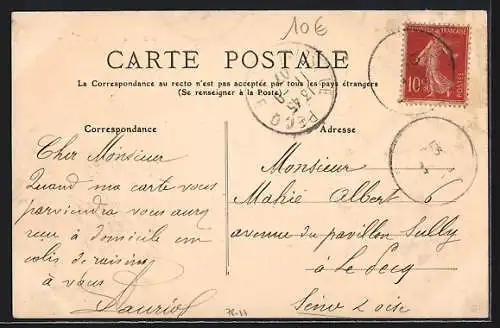 10€
CARTE POSTALE
La Correspondance au recto n'est pas acceptée par tous les pays étrangers
(Se renseigner à la Poste)
Correspondance
Cher Monsieur
Quand ma carte vous
parviendra vous aurez
reçu à domicile un
colis de raisins
à vous
Adresse
Monsieur
Mahié Albert 6
avenue du pavillon Sully
à le Pecq
Seine & Oise
10c
POSTES
13 45
PECQ
78-11